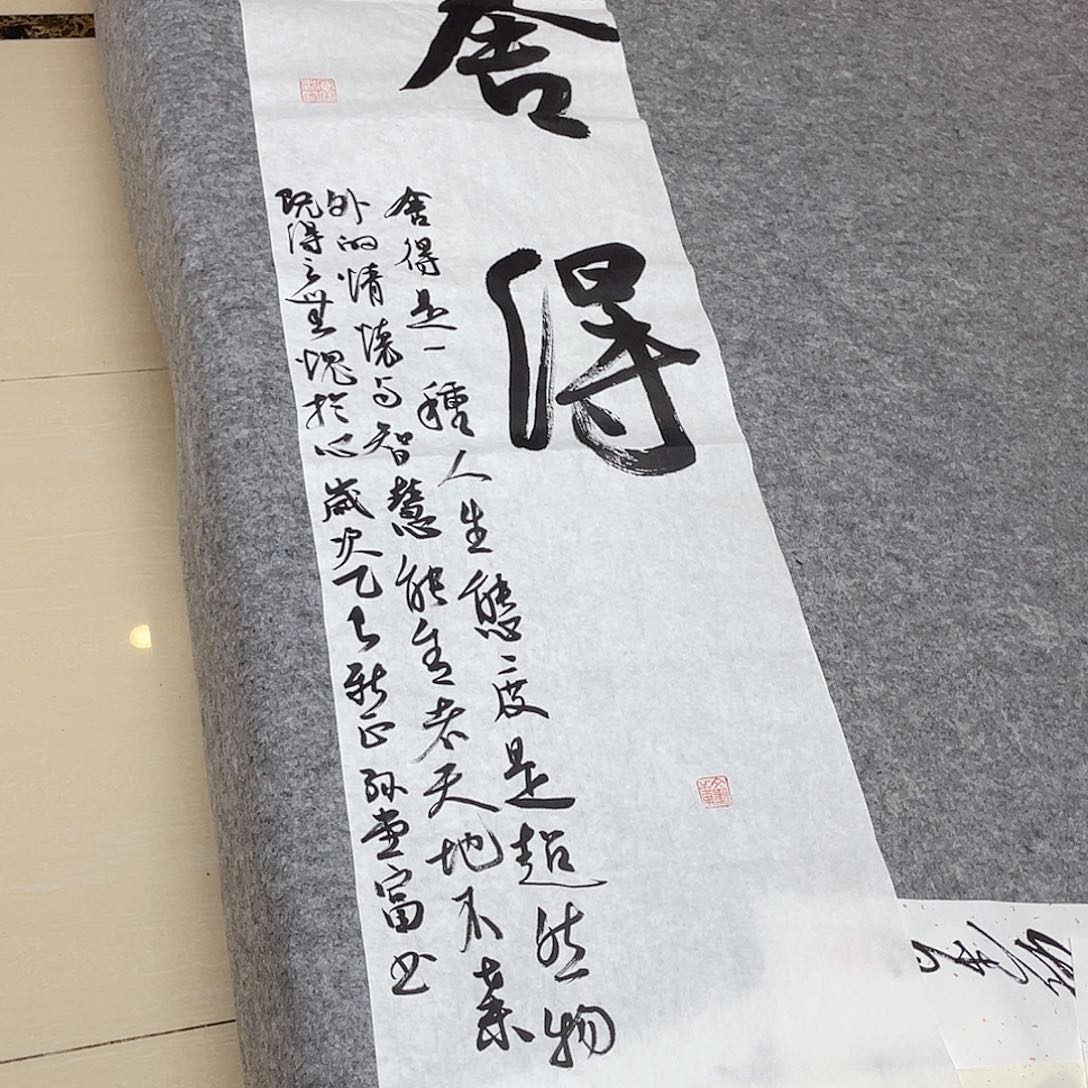 舍得
舍得是一種人生態度是超然物
外的情懷与智慧能舍者天地不棄
既得之無愧於心歲次乙巳新正孙富书